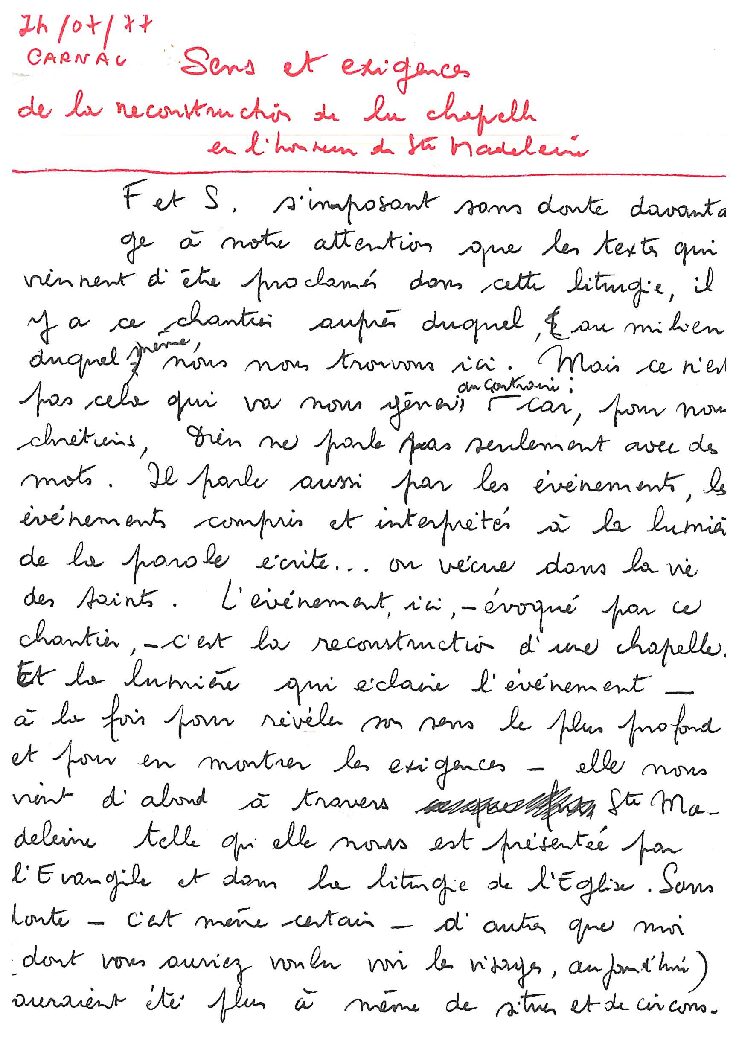 24/07/77
CARNAC
Sens et exigences
de la reconstruction de la chapelle
en l'honneur de Ste Madeleine
F et S. s'imposant sans doute davanta
ge à notre attention que les textes qui
viennent d'être proclamés dans cette liturgie, il
y a ce chantier auprès duquel, & au milieu
duquel même, nous nous trouvons ici. Mais ce n'est
pas cela qui va nous gêner, au contraire : car, pour nous
chrétiens, Dieu ne parle pas seulement avec des
mots. Il parle aussi par les événements, les
événements compris et interprétés à la lumiè
de la parole écrite... ou vécue dans la vie
des saints. L'événement, ici, - évoqué par ce
chantier, - c'est la reconstruction d'une chapelle.
Et la lumière qui éclaire l'événement —
à la fois pour révéler son sens le plus profond
et pour en montrer les exigences — elle nous
vient d'abord à travers Ste Ma-
deleine telle qu'elle nous est présentée par
l'Evangile et dans la liturgie de l'Eglise. Sans
doute — c'est même certain — d'autres que moi
dont vous auriez voulu voir les visages, aujourd'hui)
auraient été plus à même de situer et de circons-